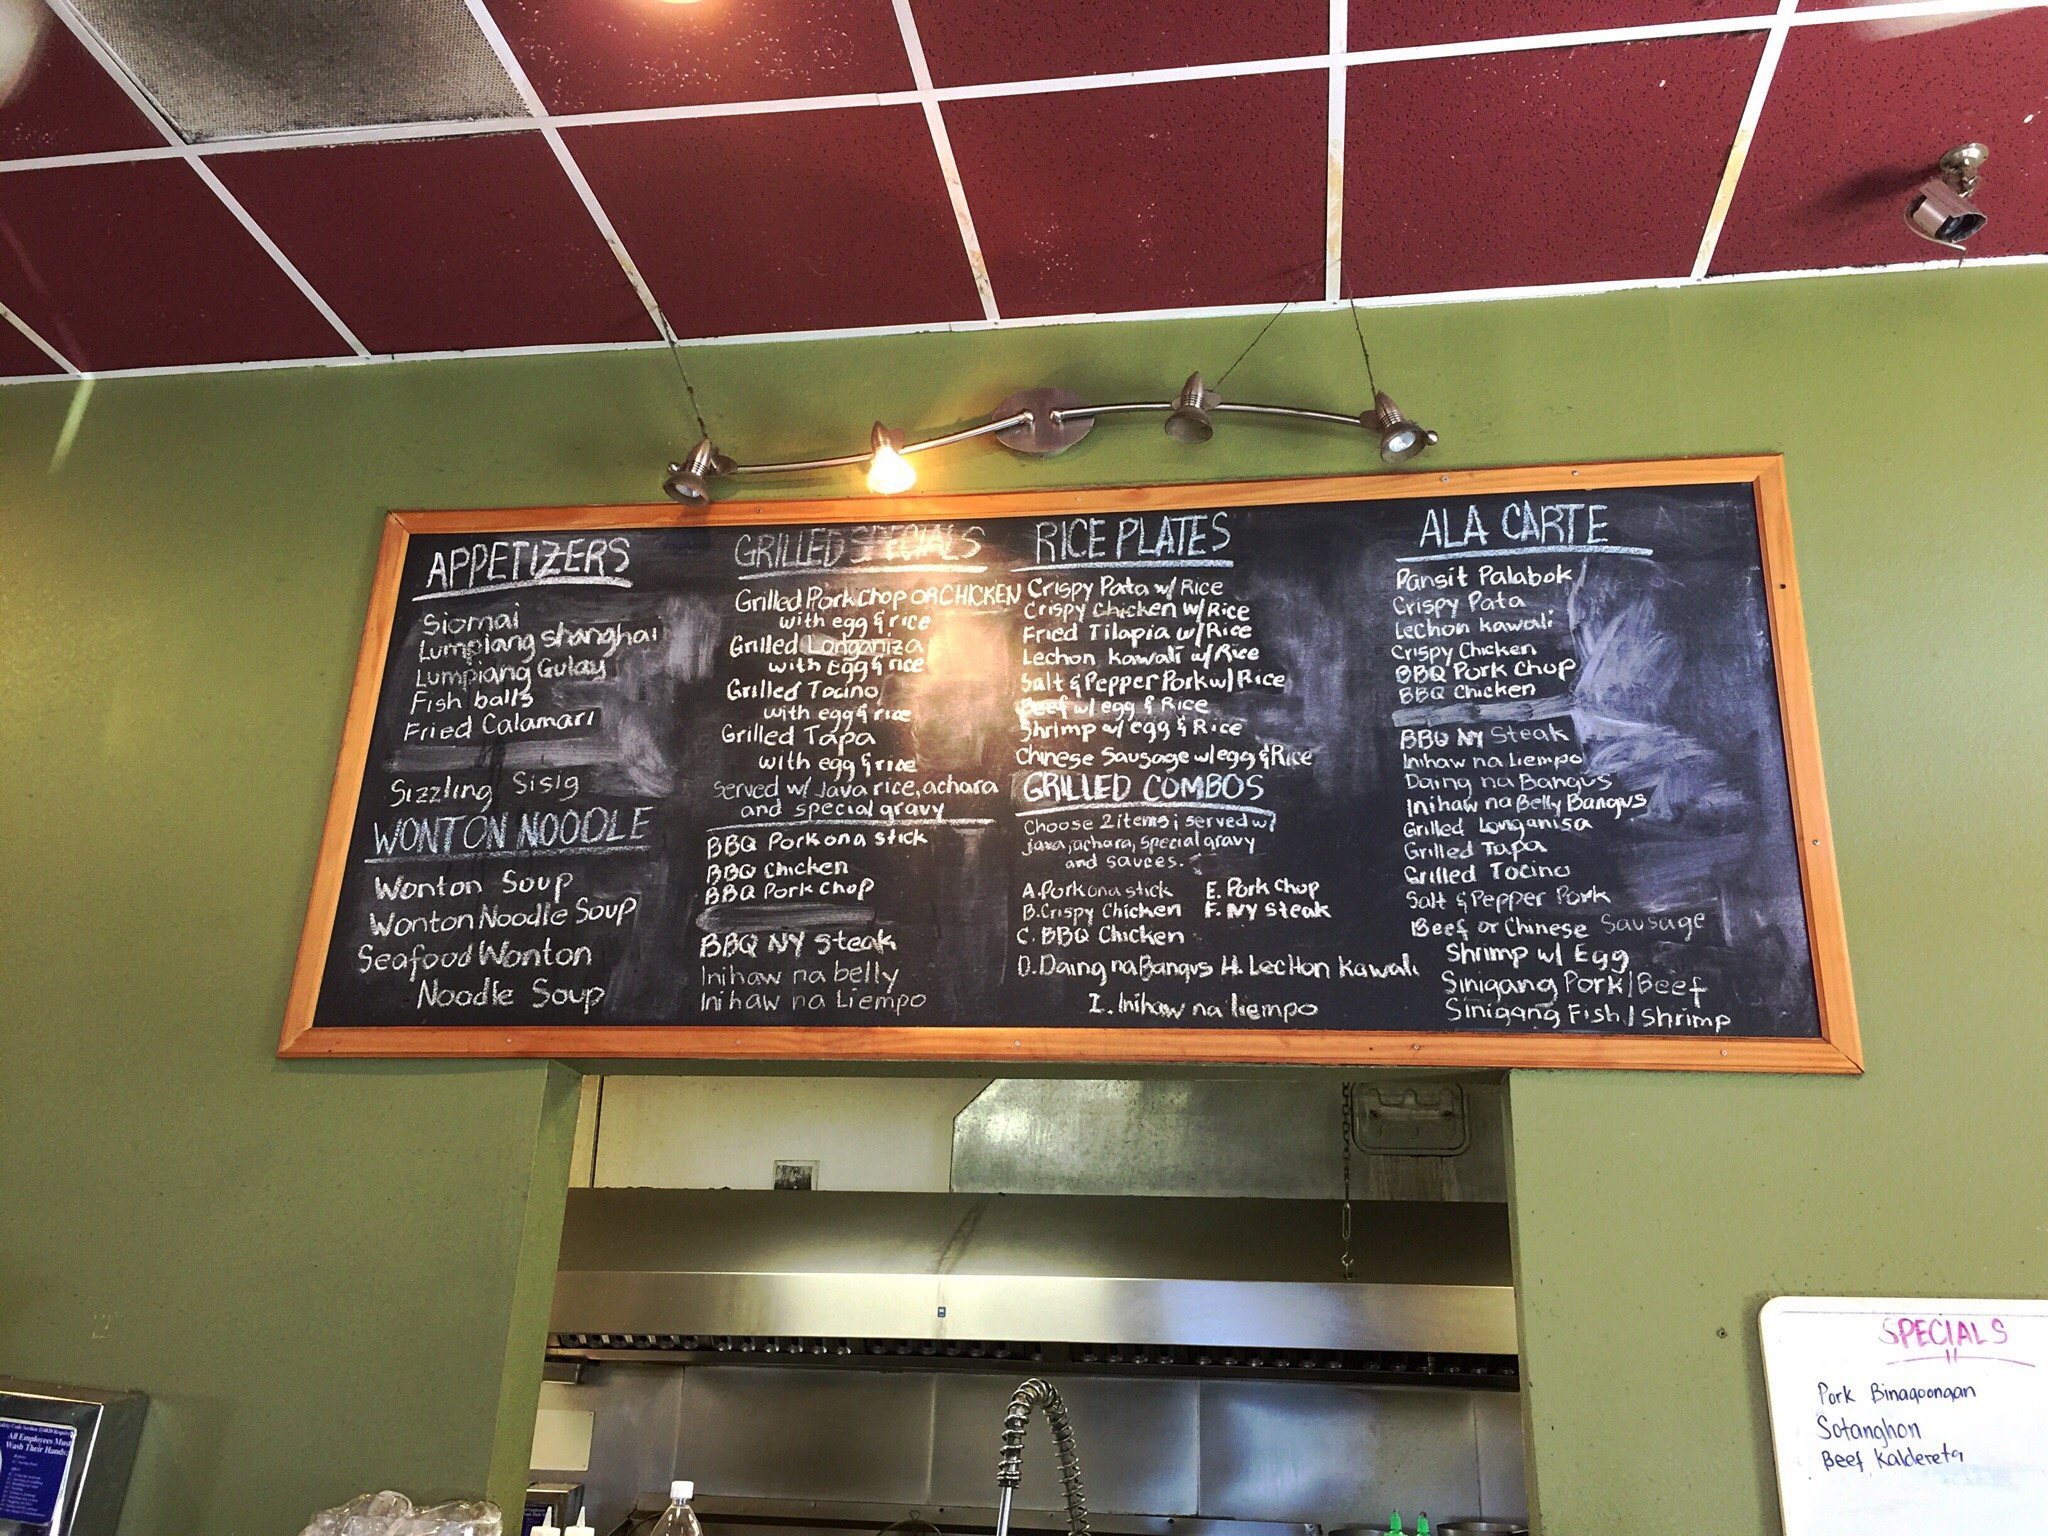 APPETIZERS
Siomai
Lumpiang Shanghai
Lumpiang Gulay
Fish balls
Fried Calamari
Sizzling Sisig
WONTON NOODLE
Wonton Soup
Wonton Noodle Soup
Seafood Wonton
Noodle Soup
GRILLED SPECIALS
Grilled Pork Chop OR CHICKEN
with egg & rice
Grilled Longaniza
with Egg & rice
Grilled Tocino
with egg & rice
Grilled Tapa
with egg & rice
Served w/ Java rice, achara
and special gravy
BBQ Pork on a stick
BBQ Chicken
BBQ Pork Chop
BBQ NY Steak
Inihaw na belly
Inihaw na Liempo
RICE PLATES
Crispy Pata w/ Rice
Crispy Chicken w/ Rice
Fried Tilapia w/ Rice
Lechon Kawali w/ Rice
Salt & Pepper Pork w/ Rice
Beef w/ egg & Rice
Shrimp w/ egg & Rice
Chinese Sausage w/ egg & Rice
GRILLED COMBOS
Choose 2 items; served w/
java, achara, special gravy
and sauces.
A. Pork on a stick E. Pork Chop
B. Crispy Chicken F. NY Steak
C. BBQ Chicken
D. Daing na Bangus H. Lechon Kawali
I. Inihaw na liempo
ALA CARTE
Pansit Palabok
Crispy Pata
Lechon Kawali
Crispy Chicken
BBQ Pork Chop
BBQ Chicken
BBQ NY Steak
Inihaw na Liempo
Daing na Bangus
Inihaw na Belly Bangus
Grilled Longanisa
Grilled Tapa
Grilled Tocino
Salt & Pepper Pork
Beef or Chinese Sausage
Shrimp w/ Egg
Sinigang Pork/Beef
Sinigang Fish/Shrimp
SPECIALS
Pork Binagoongan
Sotanghon
Beef Kaldereta
All Employees Must
Wash Their Hands